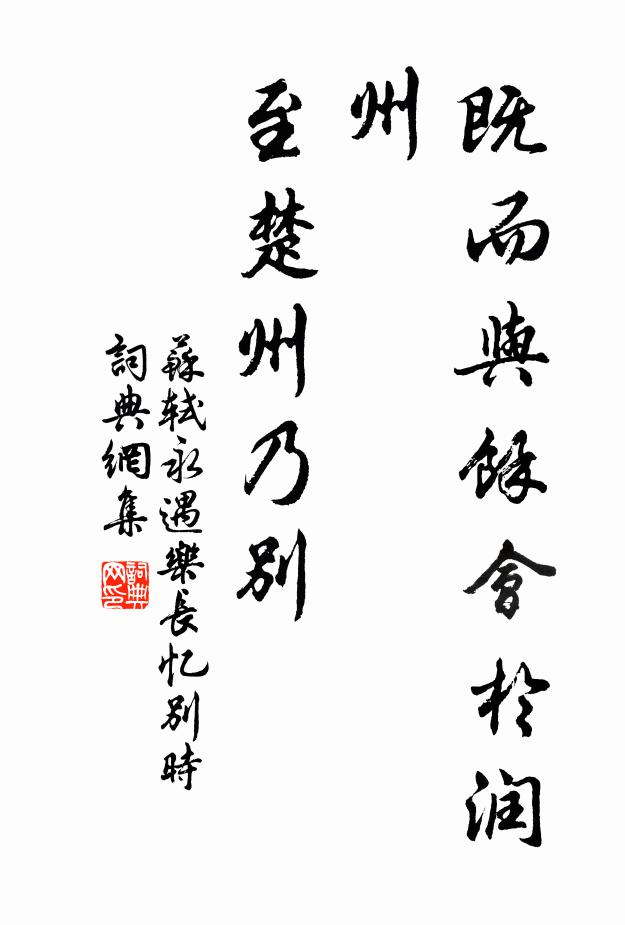 既而與餘會於润
州
至楚州乃别
蘇軾永遇樂長忆别時
詞典網集
詞典网印